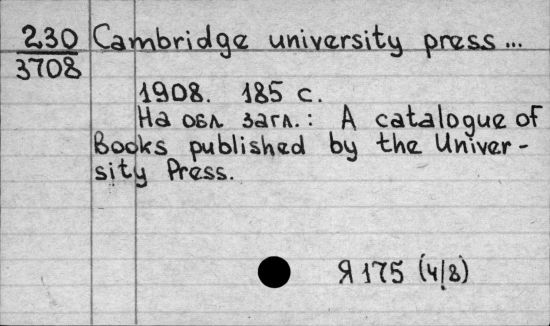 230 Cambridge university press...
3708
1908. 185 с.
На обл загл.: A catalogue of
Books published by the Univer-
sity Press.
Я 175 (4/8)